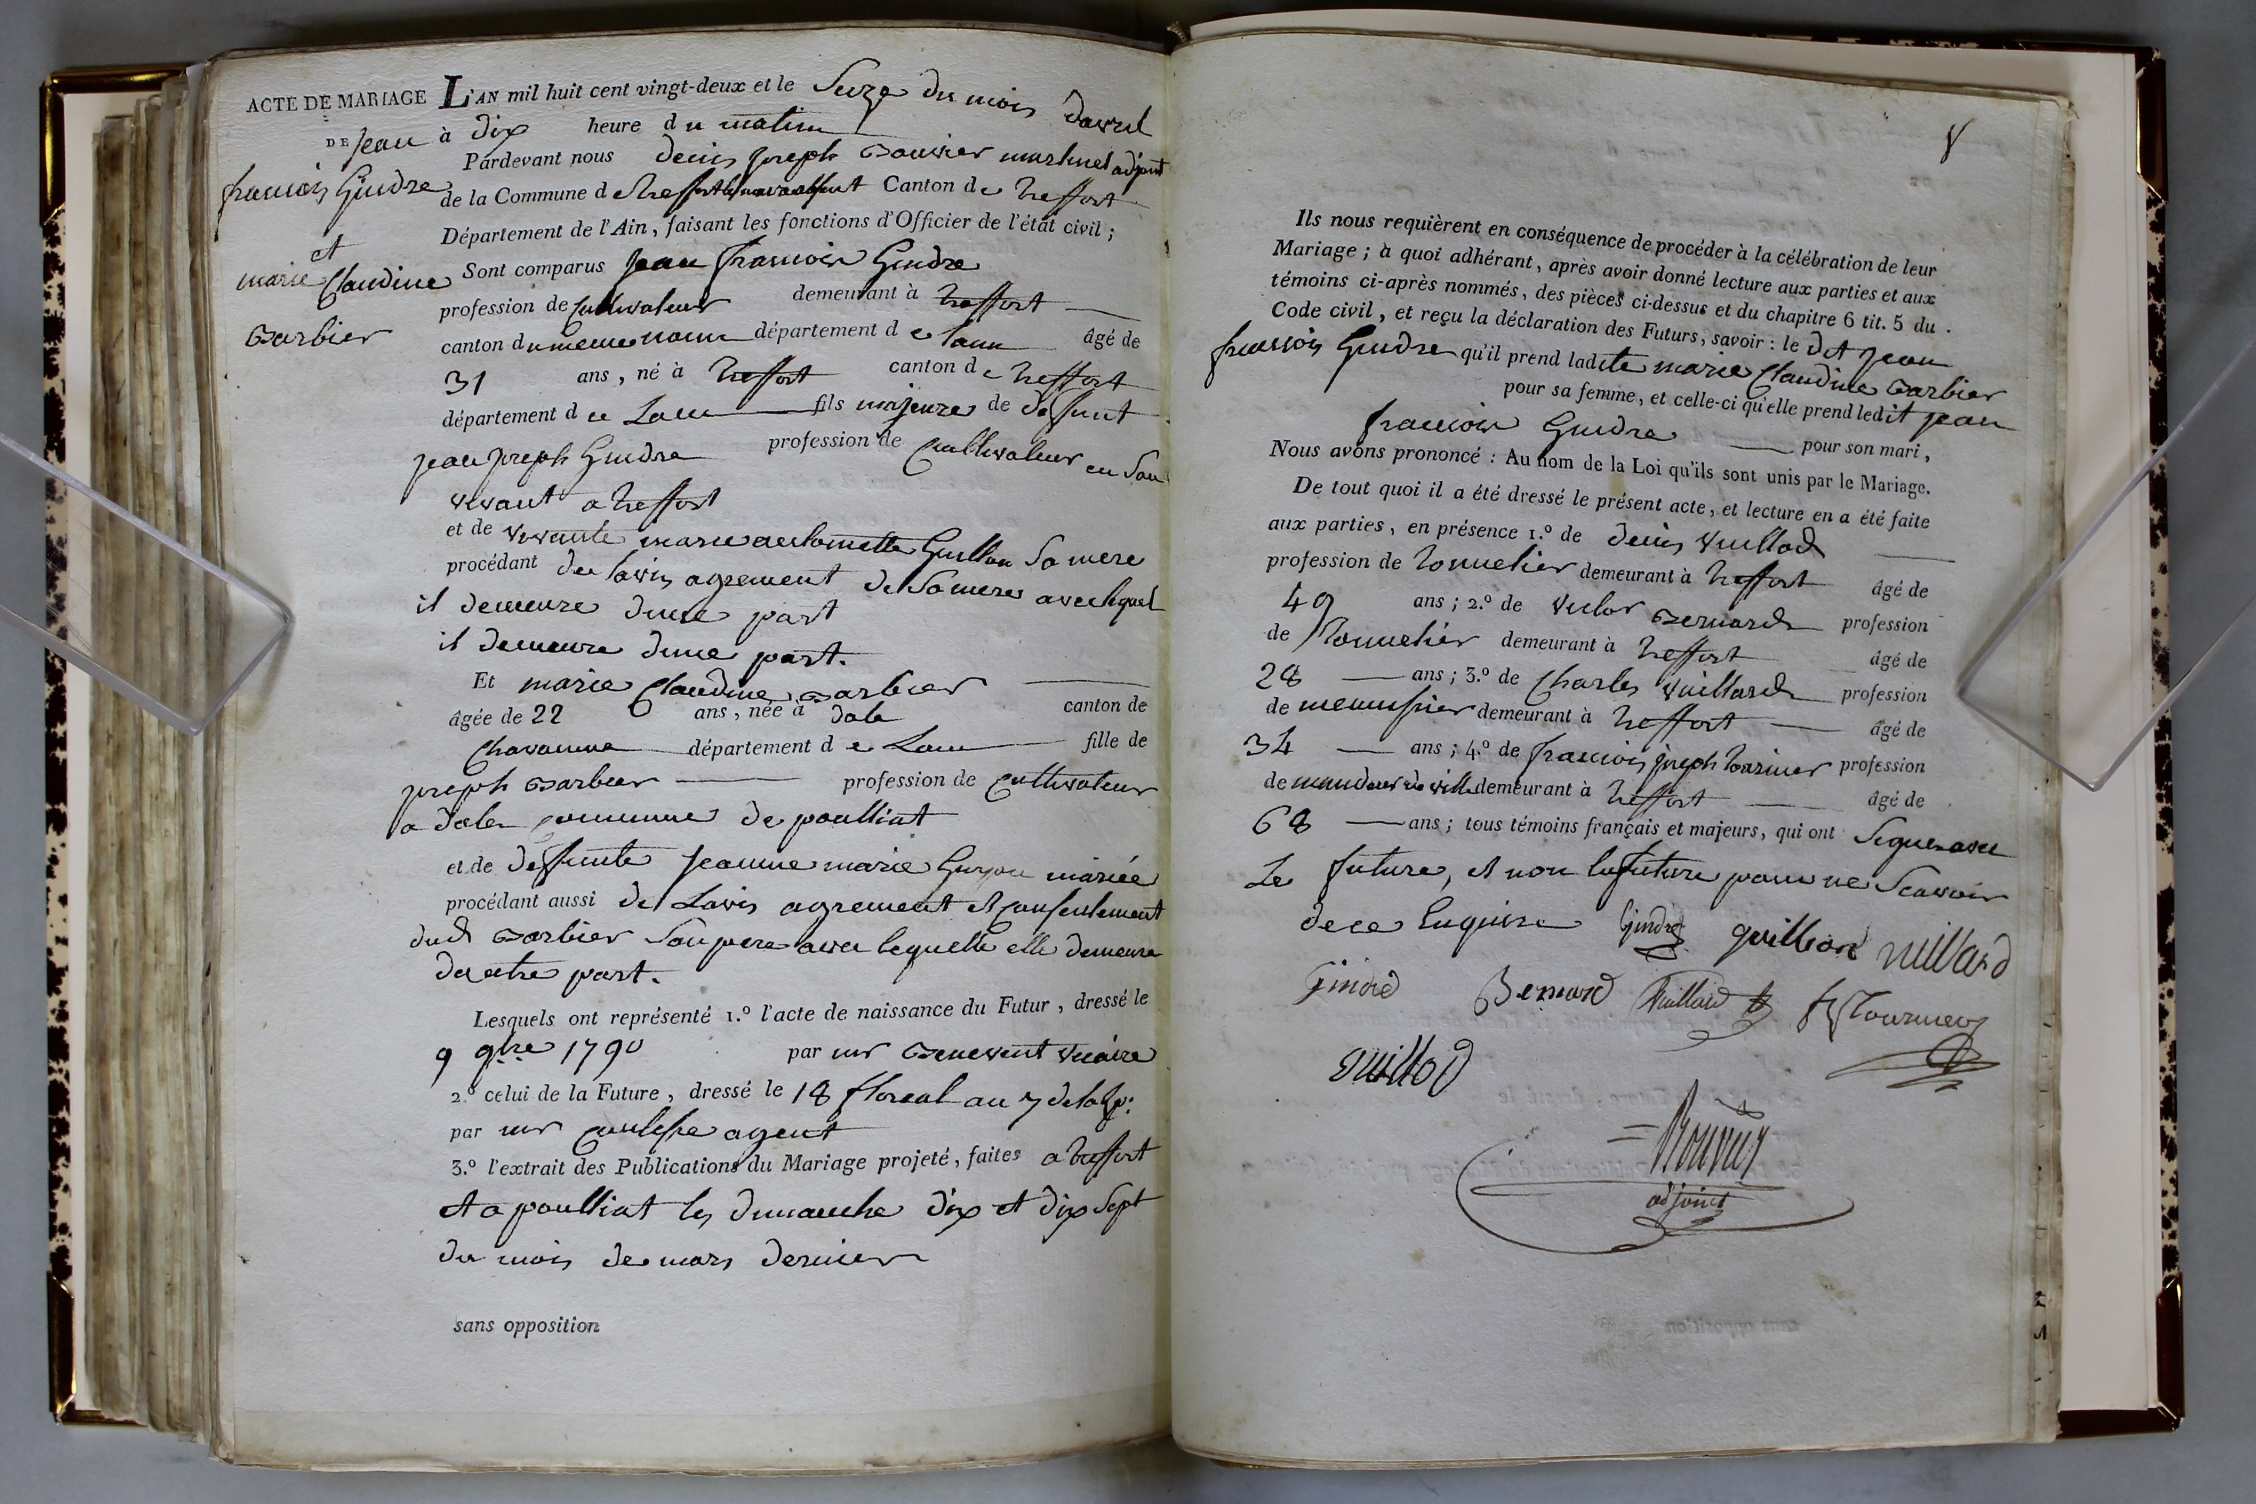 ACTE DE MARIAGE
DE Jean
francois Gindre
et
marie Claudine
Barbier
L'AN mil huit cent vingt-deux et le Seize du mois davril
à dix heure du matin
Pardevant nous denis joseph Bouvier adjoint
de la Commune de treffort Canton de treffort
Département de l'Ain, faisant les fonctions d'Officier de l'état civil;
Sont comparus jean francois Gindre
profession de Cultivateur demeurant à treffort
canton du meme nom département de lain âgé de
31 ans, né à treffort canton de treffort
département de Lain fils majeure de deffunt
jean joseph Gindre profession de Cultivateur en Son
vivant a treffort
et de vivante marie antoinette Guillon Sa mere
procédant de lavis agrement de Sa mere avec lequel
il demeure dune part
il demeure dune part.
Et marie Claudine Barbier
âgée de 22 ans, née à dale canton de
Chavanne département de Lain fille de
joseph Barbier profession de Cultivateur
a dale commune de poulliat
et de deffunte jeanne marie Guyon mariée
procédant aussi de Lavis agrement et Consentement
dudt Barbier Son pere avec lequelle elle demeure
dautre part.
Lesquels ont représenté 1.º l'acte de naissance du Futur, dressé le
9 9bre 1790 par mr Benevent vicaire
2.º celui de la Future, dressé le 18 floreal an 7 de la Rp.
par mr agent
3.º l'extrait des Publications du Mariage projeté, faites a treffort
et a poulliat les dimanche dix et dix Sept
du mois de mars dernier
sans opposition
Ils nous requièrent en conséquence de procéder à la célébration de leur
Mariage; à quoi adhérant, après avoir donné lecture aux parties et aux
témoins ci-après nommés, des pièces ci-dessus et du chapitre 6 tit. 5 du
Code civil, et reçu la déclaration des Futurs, savoir: le dit jean
francois Gindre qu'il prend ladite marie Claudine Barbier
pour sa femme, et celle-ci qu'elle prend ledit jean
francois Gindre pour son mari,
Nous avons prononcé: Au nom de la Loi qu'ils sont unis par le Mariage.
De tout quoi il a été dressé le présent acte, et lecture en a été faite
aux parties, en présence 1.º de denis Vuillod
profession de tonnelier demeurant à treffort âgé de
49 ans; 2.º de victor Bernard profession
de tonnelier demeurant à treffort âgé de
28 ans; 3.º de Charles Vuillard profession
de menuisier demeurant à treffort âgé de
34 ans; 4.º de francois joseph tournier profession
de demeurant à treffort âgé de
68 ans; tous témoins français et majeurs, qui ont Signe avec
Le future, et non la future pour ne Scavoir
de ce Enquise Gindre guillon vuillard
Gindre Bernard Vuillard fj Tournier
vuillod
Bouvier
adjoint